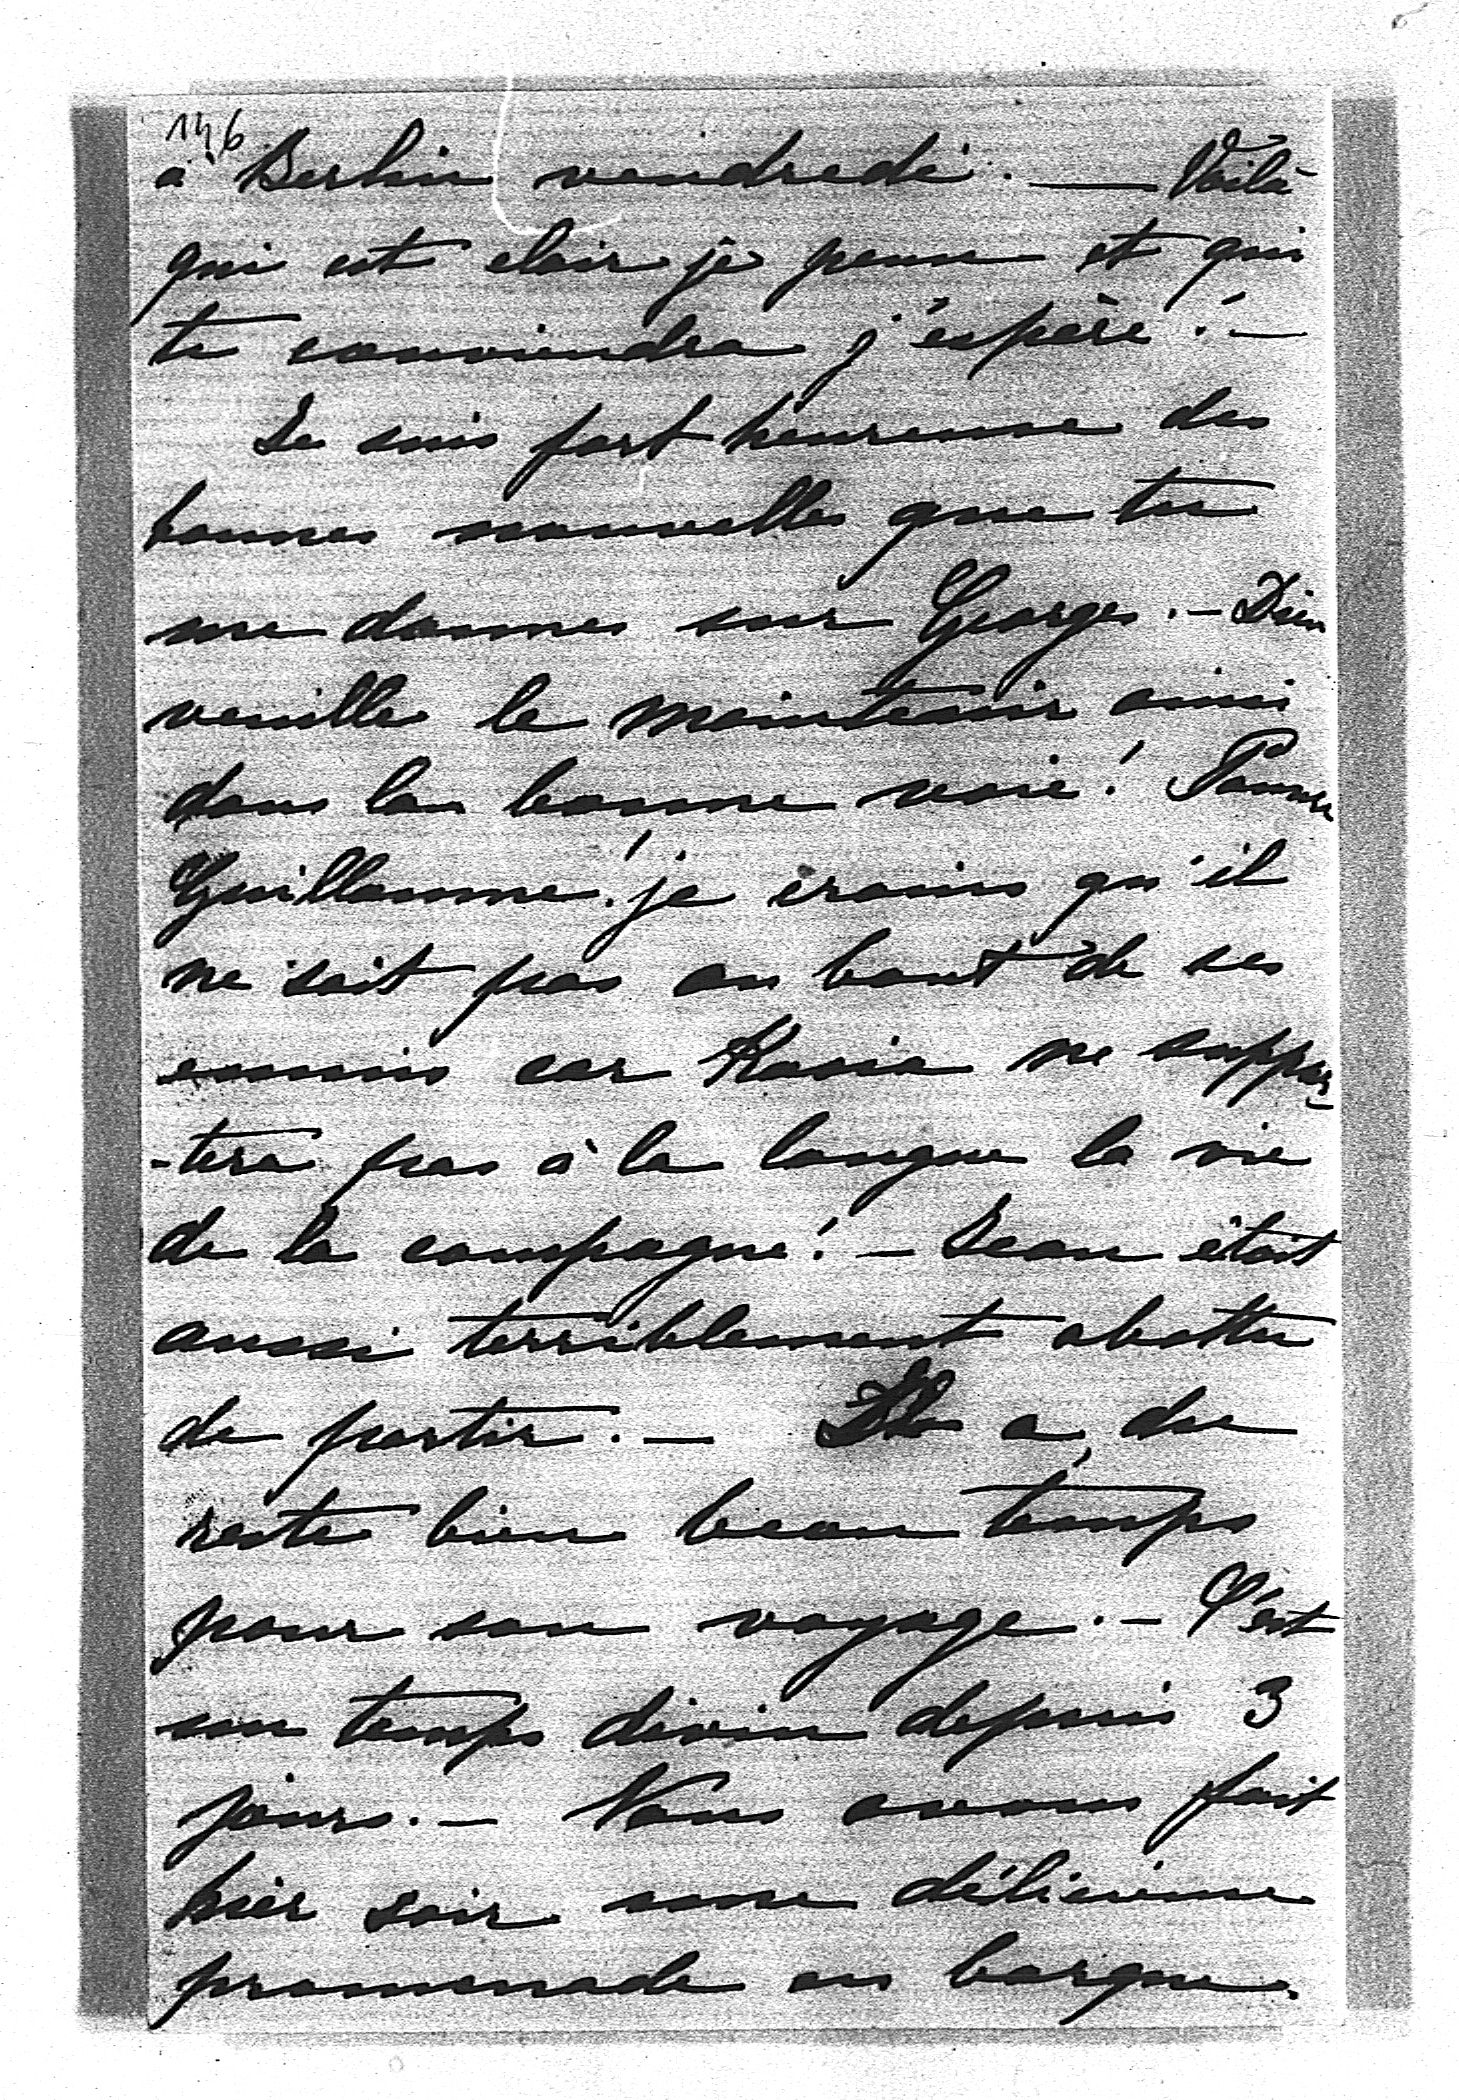 146
à Berlin vendredi. — Voilà
qui est clair je pense et qui
te conviendra j'espère! —
Je suis fort heureuse des
bonnes nouvelles que tu
me donnes sur Georges. — Dieu
veuille le maintenir ainsi
dans la bonne voie! Pauvre
Guillaume! je crains qu'il
ne soit pas au bout de ses
ennuis car Kasia ne suppor-
-tera pas à la longue la vie
de la campagne! — Jean était
aussi terriblement abattu
de partir. — Il a du
reste bien beau temps
pour son voyage. — C'est
un temps divin depuis 3
jours. — Nous avons fait
hier soir une délicieuse
promenade en barque.